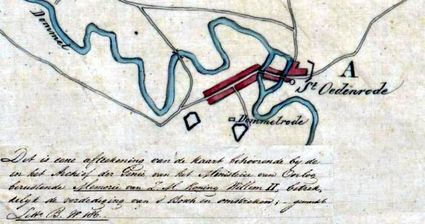 Dommel
A
St Oedenrode
Dommelrode
Dit is eene afteekening van de kaart behoorende bij de
in het Archief der Genie van het Ministerie van Oorlog
berustende Memorie van Z.M. Koning Willem II, betrek-
kelijk de verdediging van 's Bosch en omstreken;